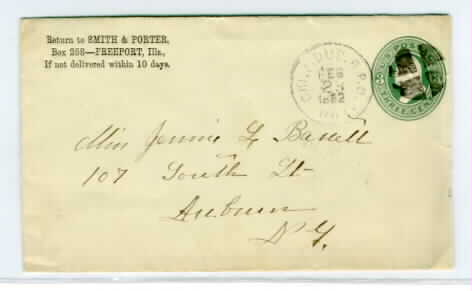 Return to SMITH & PORTER,
Box 268—FREEPORT, Ills.,
If not delivered within 10 days.
CHI. & DUB. R.P.O.
U.S. POSTAGE
THREE CENTS
Miss Jennie L Barrett
107 South St
Auburn
N.Y.